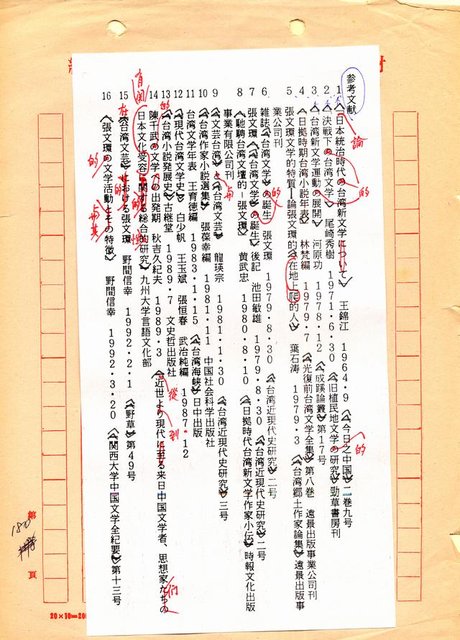 参考文献
1 《日本統治時代の台湾新文学について》 王錦江 1964・9 《今日之中国》二巻九号
2 《決戦下の台湾文学》 尾崎秀樹 1971・6・30 《旧植民地文学の研究》勁草書房刊
3 《台湾新文学運動の展開》 河原功 1978・12 《成蹊論叢》第17号
4 《日拠時期台湾小説年表》 林梵編 1979・7 《光復前台湾文学全集》第八巻 遠景出版事業公司刊
5 張文環文学的特質―論張文環的《在地上爬的人》 葉石涛 1979・3 《台湾郷土作家論集》遠景出版事
業公司刊
6 雑誌《台湾文学》の誕生 張文環 1979・8・30 《台湾近現代史研究》二号
7 張文環《台湾文学》の誕生》後記 池田敏雄 1979・8・30 《台湾近現代史研究》二号
8 《馳騁台湾文壇的―張文環》 黄武忠 1980・8・10 《日拠時代台湾新文学作家小伝》時報文化出版
事業有限公司刊
9 《文芸台湾》 龍瑛宗 1981・1・30 《台湾近現代史研究》三号
10 《台湾作家小説選集》 張葆莘編 1981・11 中国社会科学出版社
11 台湾文学年表 王育徳編 1983・1・15 《台湾海峡》日中出版
12 《現代台湾文学史》 白少帆 王玉斌 張恒春 武治純編 1987・12
13 《台湾小説発展史》 古継堂 1989・7 文史哲出版社
14 陳千武の文学の出発期 秋吉久紀夫 1989・3 《近世より現代に至る来日中国文学者、思想家たちの
日本文化受容に関する総合的研究》九州大学言語文化部
15 《台湾文芸》における張文環 野間信幸 1992・2・1 《野草》第49号
16 《張文環の文学活動とその特徴》 野間信幸 1992・3・20 《関西大学中国文学会紀要》第十三号
第 頁
20×10=20